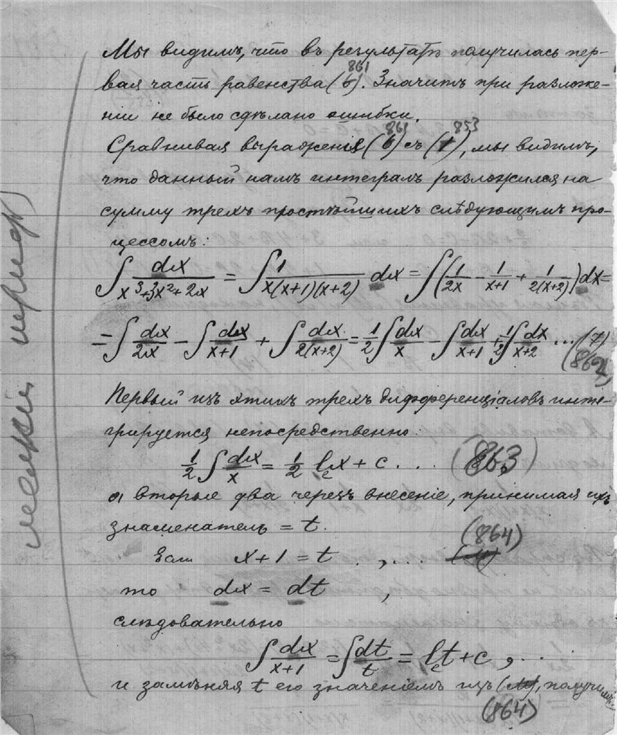 Мы видимъ, что въ результатѣ получилась пер-
вая часть равенства (6). Значитъ при разложе-
861
нии не было сдѣлано ошибки.
Сравнивая выраженія (6) съ (1), мы видимъ,
861 853
что данный намъ интегралъ разложился на
сумму трехъ простѣйшихъ слѣдующимъ про-
цессомъ:
∫ dx/(x³+3x²+2x) = ∫ 1/(x(x+1)(x+2)) dx = ∫(1/(2x) - 1/(x+1) + 1/(2(x+2)))dx =
= ∫ dx/(2x) - ∫ dx/(x+1) + ∫ dx/(2(x+2)) = 1/2 ∫ dx/x - ∫ dx/(x+1) + 1/2 ∫ dx/(x+2) ... (7)
(862)
Первый изъ этихъ трехъ дифференціаловъ инте-
грируется непосредственно:
1/2 ∫ dx/x = 1/2 lx + c . . . (863)
а вторые два черезъ внесеніе, принимая ихъ
знаменатель = t.
(864)
Если x+1 = t . , . . .
то dx = dt ,
слѣдовательно
∫ dx/(x+1) = ∫ dt/t = lt + c , . .
и замѣняя t его значеніемъ изъ, получимъ
(864)
мелкій шрифт